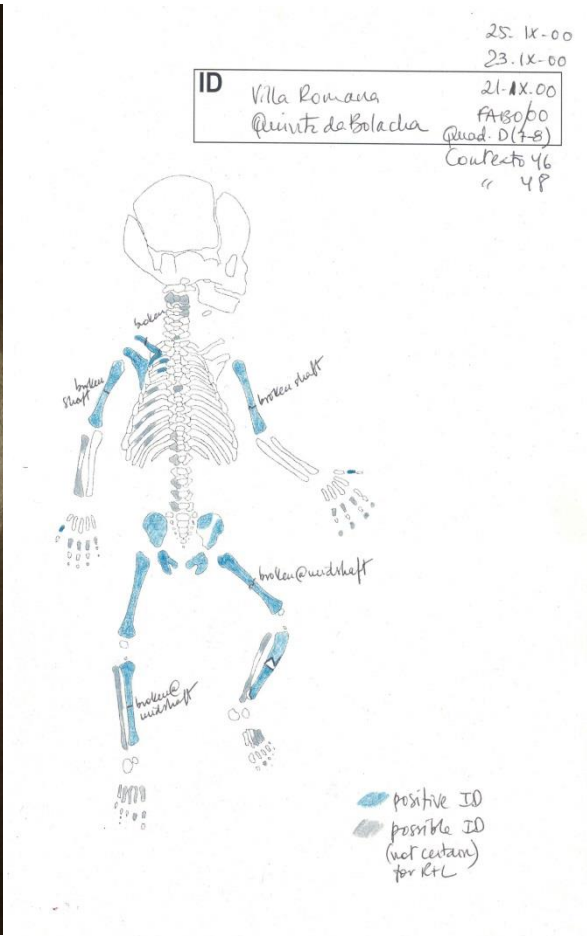 25. IX-00
23. IX-00
ID
Villa Romana
21-IX.00
Quinta da Bolacha
FABO/00
Quad. D(7-8)
Contexto 46
" 48
broken
broken
shaft
broken shaft
broken@midshaft
broken@
midshaft
positive ID
possible ID
(not certain)
for R+L